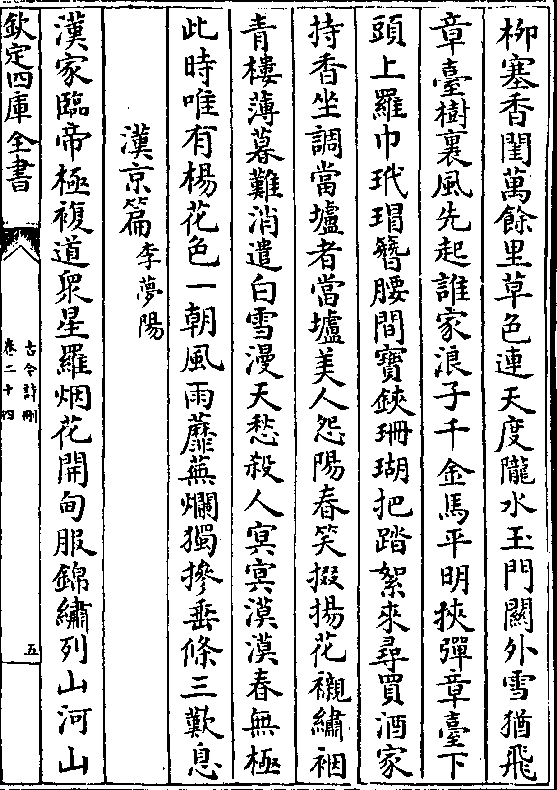 柳塞香閨萬餘里草色連天度隴水玉門關外雪猶飛
章臺樹裏風先起誰家浪子千金馬平明挾彈章臺下
頭上羅巾玳瑁簪腰間寶鋏珊瑚把踏絮來尋買酒家
持香坐調當壚者當壚美人怨陽春笑掇揚花襯繡裀
青樓薄暮難消遣白雪漫天愁殺人冥冥漠漠春無極
此時唯有楊花色一朝風雨蘼蕪爛獨摻垂條三歎息
漢京篇 李夢陽
漢家臨帝極複道衆星羅烟花開甸服錦繡列山河山
欽定四庫全書
古今詩刪
卷二十四
五